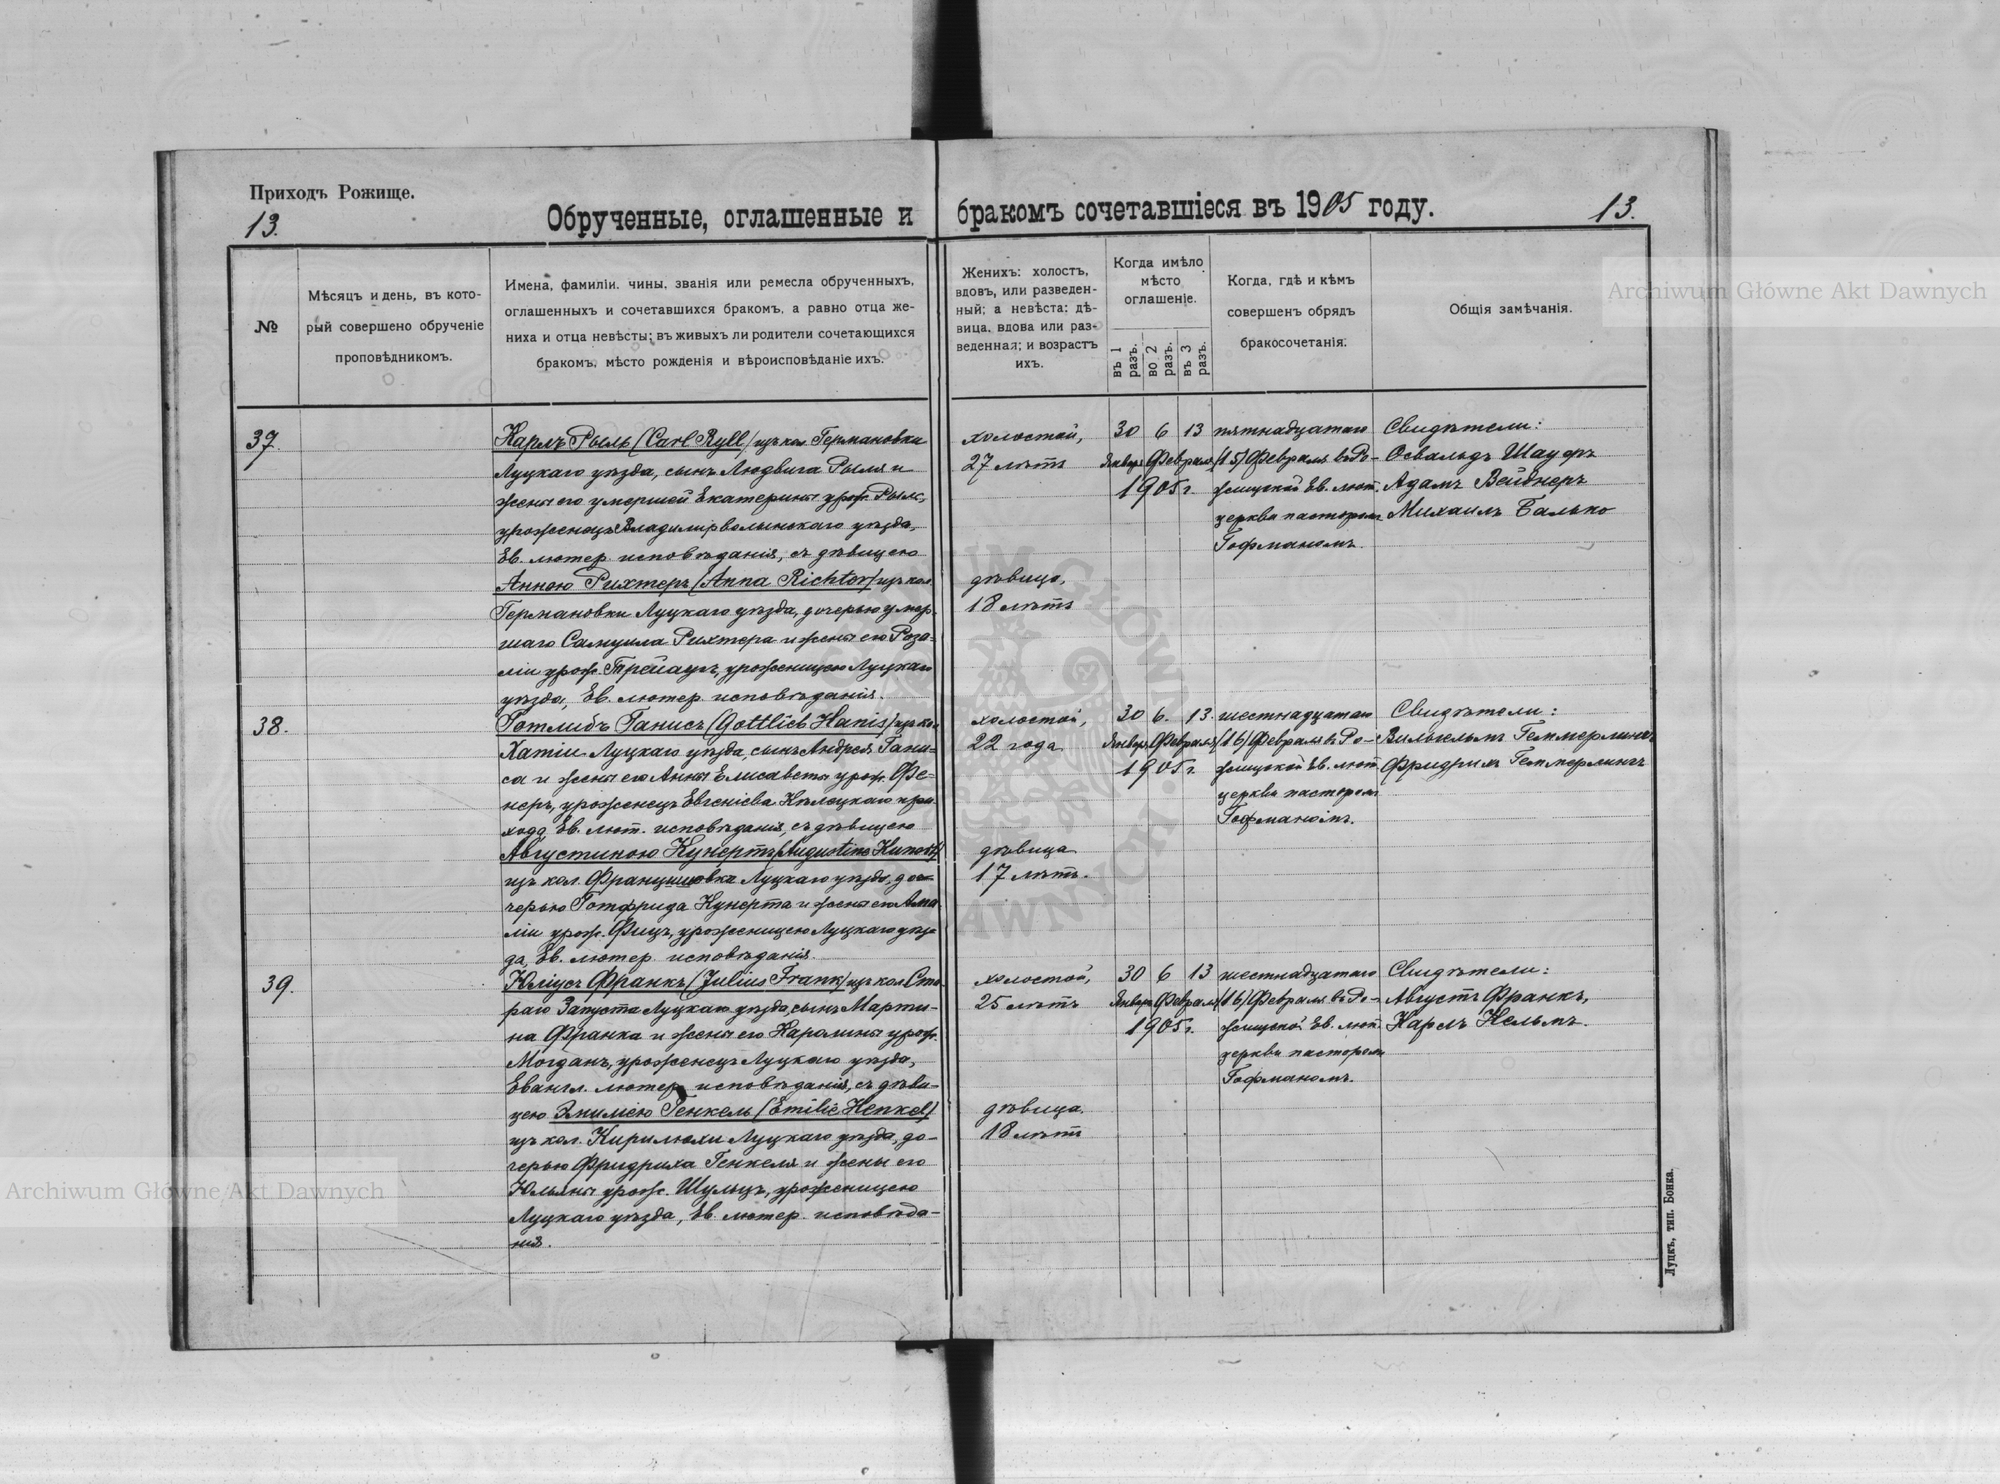 Приходъ Рожище.
13.
Обрученные, оглашенные и бракомъ сочетавшіеся въ 1905 году.
13.
№
Мѣсяцъ и день, въ кото-
рый совершено обрученіе
проповѣдникомъ.
Имена, фамиліи, чины, званія или ремесла обрученныхъ,
оглашенныхъ и сочетавшихся бракомъ, а равно отца же-
ниха и отца невѣсты; въ живыхъ ли родители сочетающихся
бракомъ, мѣсто рожденія и вѣроисповѣданіе ихъ.
Женихъ: холостъ,
вдовъ, или разведен-
ный; а невѣста: дѣ-
вица, вдова или раз-
веденная; и возрастъ
ихъ.
Когда имѣло
мѣсто
оглашеніе.
въ 1 разъ.
во 2 разъ.
въ 3 разъ.
Когда, гдѣ и кѣмъ
совершенъ обрядъ
бракосочетанія.
Общія замѣчанія.
37.
Карлъ Рыль (Carl Ryll) изъ кол. Германовки
Луцкаго уѣзда, сынъ Людвига Рыля и
жены его умершей Екатерины урож. Рыль,
уроженецъ Владимірволынскаго уѣзда,
Ев. лютер. исповѣданія, съ дѣвицею
Анною Рихтеръ (Anna Richter) изъ кол.
Германовки Луцкаго уѣзда, дочерью умер-
шаго Самуила Рихтера и жены его Роза-
ліи урож. уроженицею Луцкаго
уѣзда, Ев. лютер. исповѣданія.
холостой,
27 лѣтъ
дѣвица,
18 лѣтъ
30 6 13
Января Февраля
1905 г.
пятнадцатаго
(15) Февраля въ Ро-
жищской Ев. лют.
церкви пасторомъ
Гофманомъ.
Свидѣтели:
Освальдъ Шауфъ
Адамъ Вейднеръ
Михаилъ Балько
38.
Готлибъ Ганисъ (Gottlieb Hanis) изъ кол.
Хатіи Луцкаго уѣзда, сынъ Андрея Гани-
са и жены его Анны Елисаветы урож. Фе-
неръ, уроженецъ Евгеніева Кѣлецкаго при-
хода, Ев. лют. исповѣданія, съ дѣвицею
Августиною Кунертъ (Augustine Kunert)
изъ кол. Францишовка Луцкаго уѣзда, до-
черью Готфрида Кунерта и жены его Ама-
ліи урож. Фицъ, уроженицею Луцкаго уѣз-
да, Ев. лютер. исповѣданія.
холостой,
22 года
дѣвица
17 лѣтъ.
30 6. 13.
Января Февраля
1905 г.
шестнадцатаго
(16) Февраля въ Ро-
жищской Ев. лют.
церкви пасторомъ
Гофманомъ.
Свидѣтели:
Вильгельмъ Геммерлингъ
Фридрихъ Геммерлингъ
39.
Юліусъ Франкъ (Julius Frank) изъ кол. Ста-
раго Запуста Луцкаго уѣзда, сынъ Марти-
на Франка и жены его Каролины урож.
Могданъ, уроженецъ Луцкаго уѣзда,
Евангл. лютер. исповѣданія, съ дѣви-
цею Эмиліею Генкель (Emilie Henkel)
изъ кол. Кирилюхи Луцкаго уѣзда, до-
черью Фридриха Генкеля и жены его
Юльяны урож. Шульцъ, уроженицею
Луцкаго уѣзда, Ев. лютер. исповѣда-
нія.
холостой,
25 лѣтъ
дѣвица.
18 лѣтъ
30 6 13
Января Февраля
1905 г.
шестнадцатаго
(16) Февраля въ Ро-
жищской Ев. лют.
церкви пасторомъ
Гофманомъ.
Свидѣтели:
Августъ Франкъ,
Карлъ Кельмъ.
Луцкъ, тип. Бонка.
Archiwum Główne Akt Dawnych
Archiwum Główne Akt Dawnych